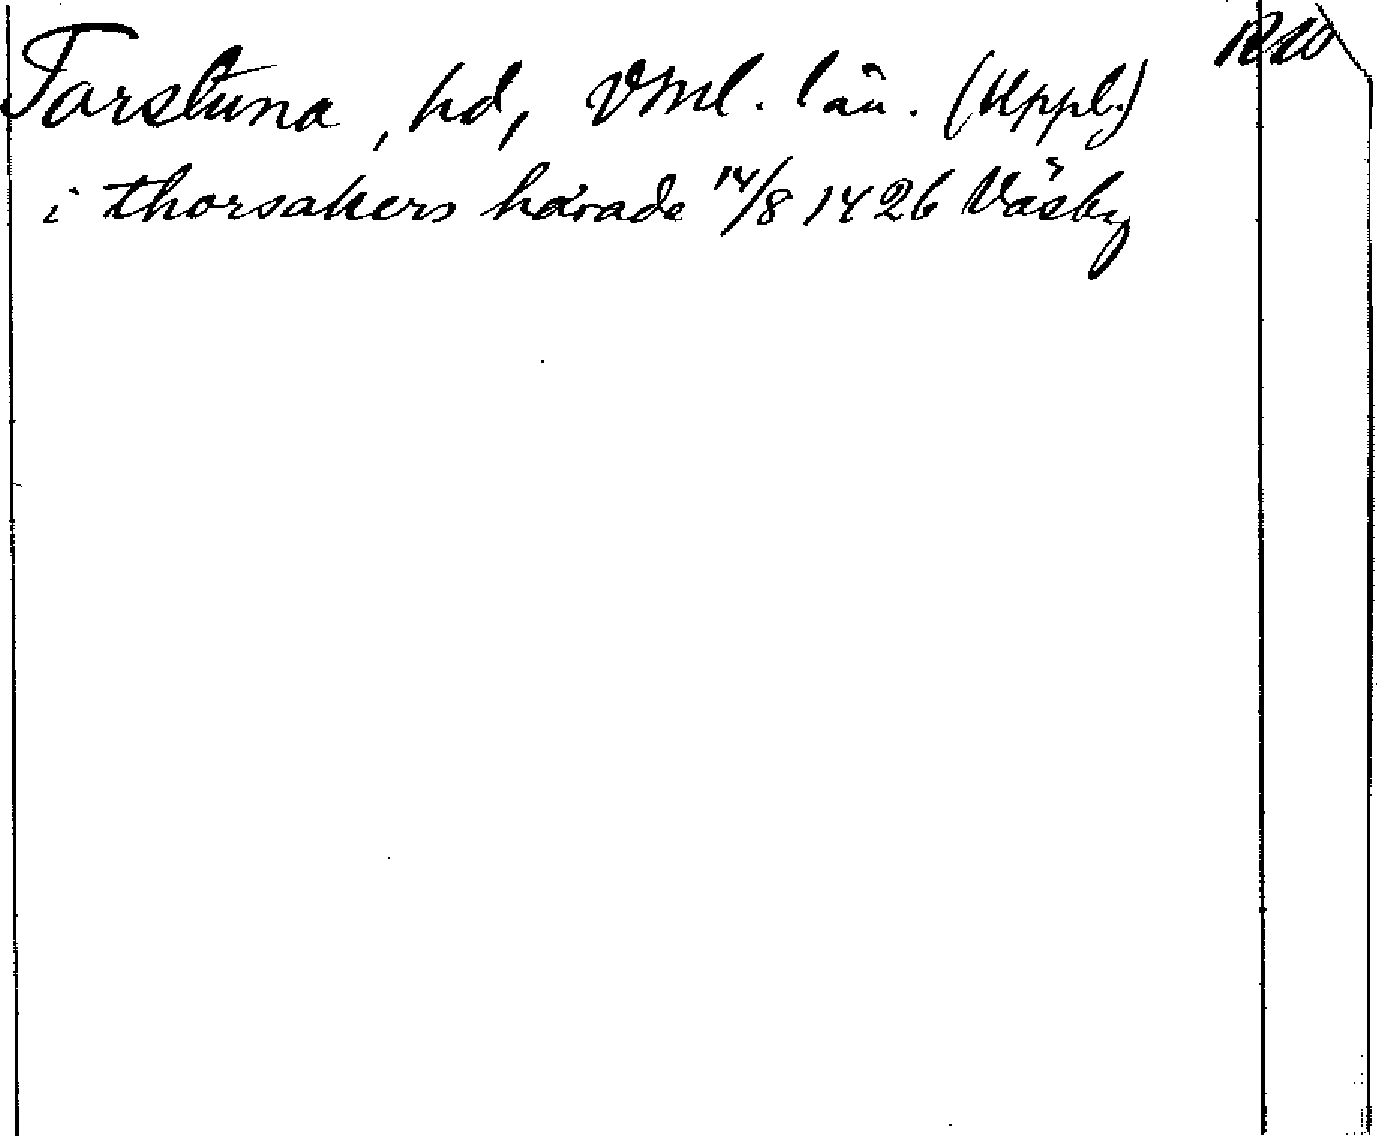 Torstuna, hd, Vml. län. (Uppl.)
i thorsakers hárade 14/8 1426 Väsby